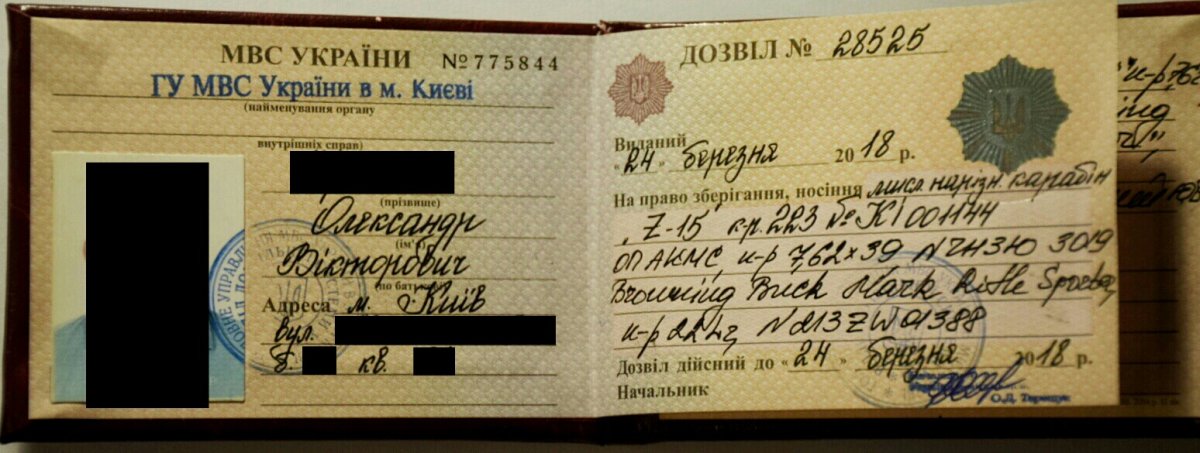 МВС УКРАЇНИ №775844
ГУ МВС України в м. Києві
(найменування органу
внутрішніх справ)
(прізвище)
Олександр
(ім'я)
Вікторович
(по батькові)
Адреса м. Київ
вул.
б. кв.
ДОЗВІЛ № 28525
Виданий
"24" березня 2018 р.
На право зберігання, носіння мисл. нарізн. карабін
Z-15 к.р. 223 № КІ001144
ОП АКМС к-р 7,62×39 N ЧНЗЮ 3019
Browning Buck Mark Rifle
к-р 22 N213ZW01388
Дозвіл дійсний до "24" березня 2018 р.
Начальник